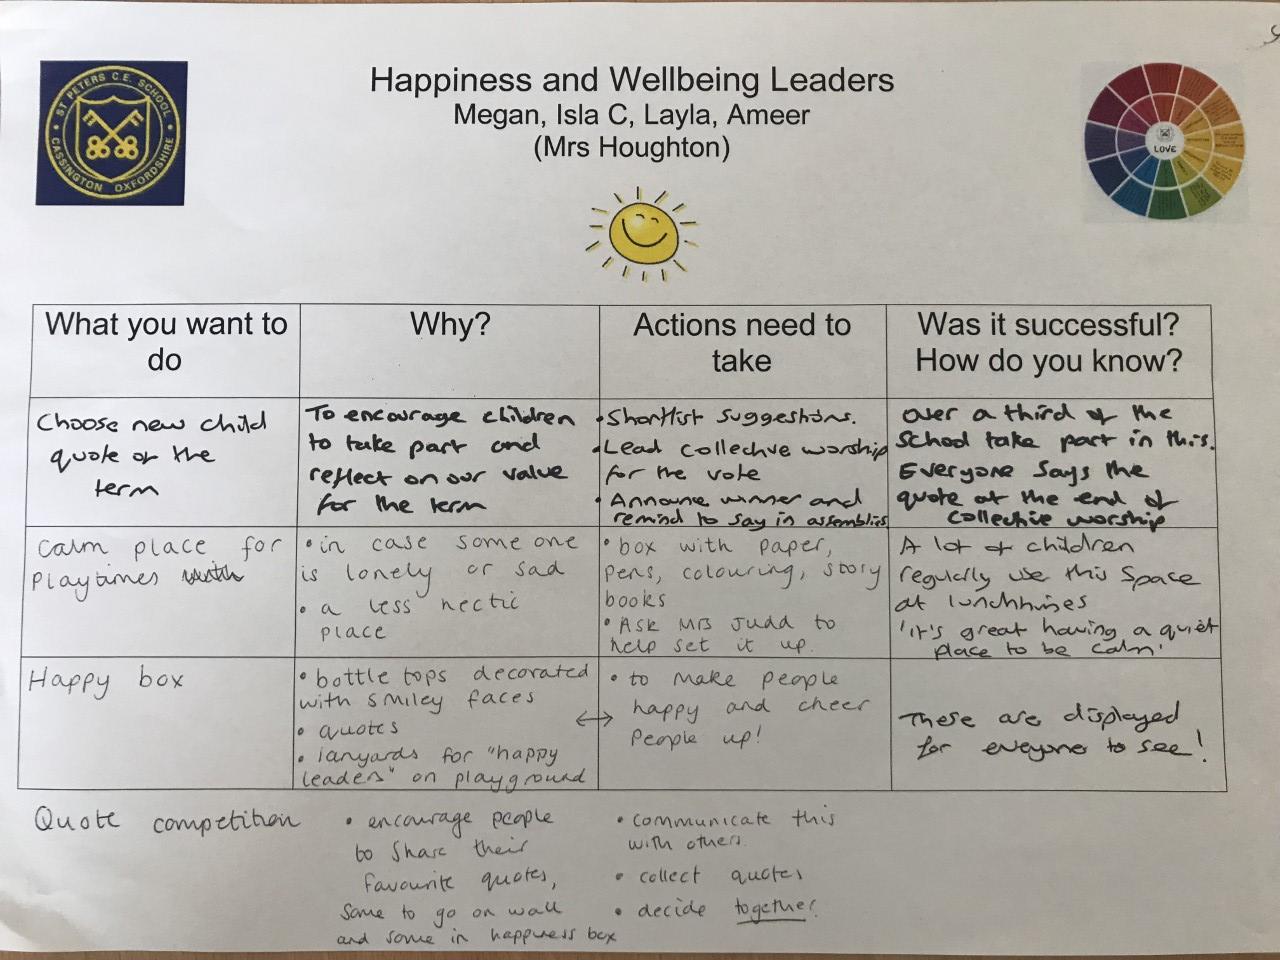 ST PETERS C.E. SCHOOL
CASSINGTON OXFORDSHIRE
Happiness and Wellbeing Leaders
Megan, Isla C, Layla, Ameer
(Mrs Houghton)
LOVE
What you want to
do
Why?
Actions need to
take
Was it successful?
How do you know?
Choose new child
quote of the
term
To encourage children
to take part and
reflect on our value
for the term
• Shortlist suggestions.
• Lead collective worship
for the vote
• Announce winner and
remind to say in assemblies
Over a third of the
School take part in this.
Everyone says the
quote at the end of
collective worship
Calm place for
playtimes
• in case someone
is lonely or sad
• a less hectic
place
• box with paper,
pens, colouring, story
books
• Ask Mrs Judd to
help set it up.
A lot of children
regularly use this space
at lunchtimes
'it's great having a quiet
place to be calm'
Happy box
• bottle tops decorated
with smiley faces
• quotes
• lanyards for "happy
leaders" on playground
↔
• to make people
happy and cheer
people up!
These are displayed
for everyone to see!
Quote competition
• encourage people
to share their
favourite quotes,
some to go on wall
and some in happiness box
• communicate this
with others.
• collect quotes
• decide together.